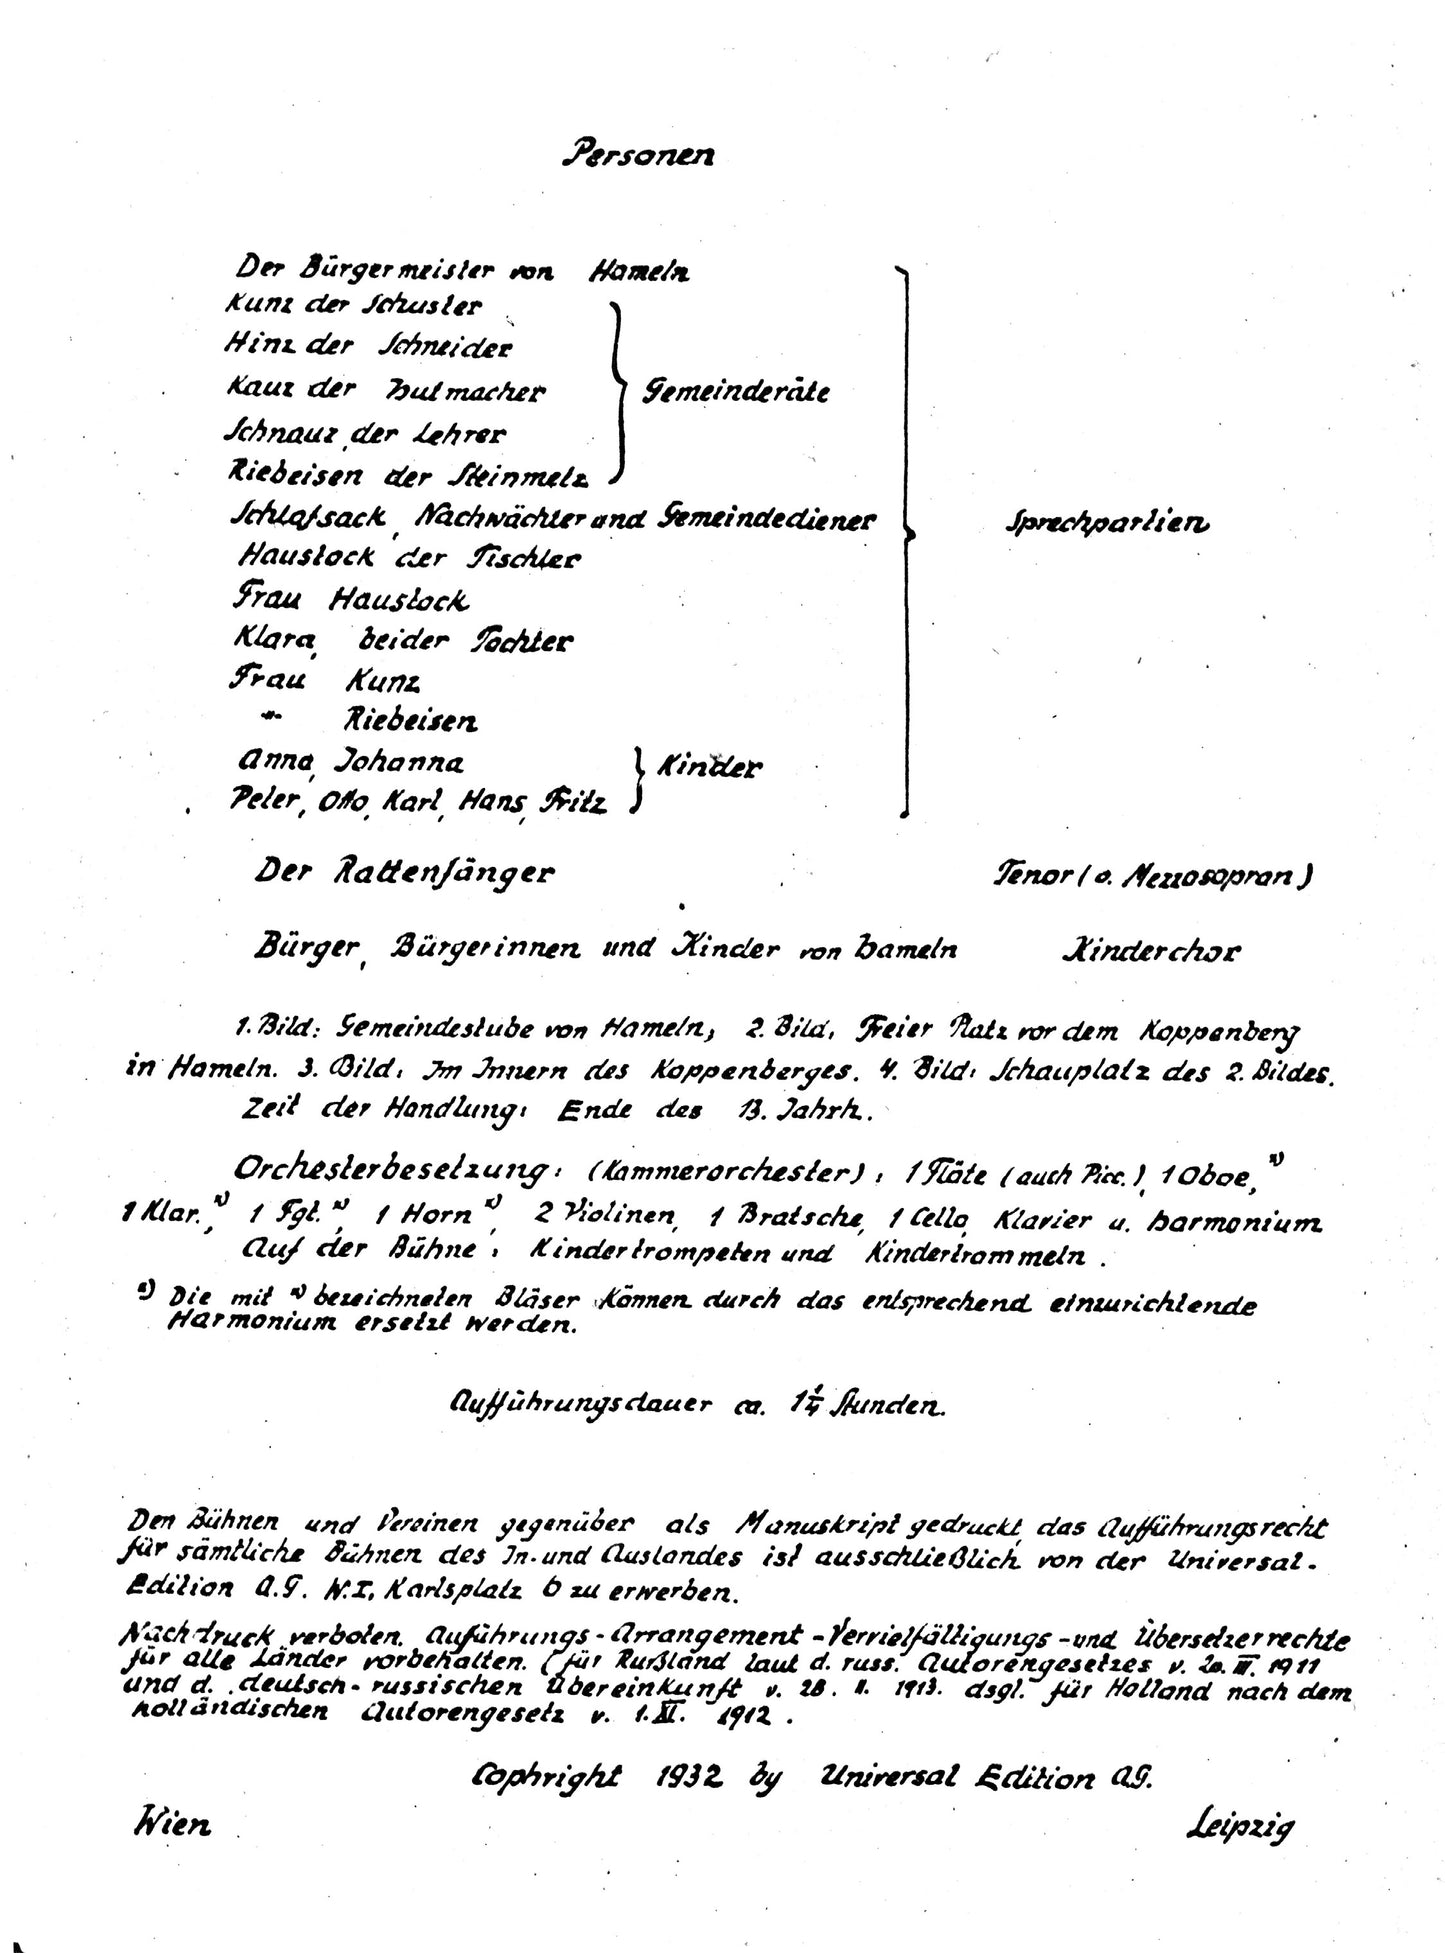 Personen
Der Bürgermeister von Hameln
Kunz der Schuster
Hinz der Schneider
Kauz der Hutmacher
Gemeinderäte
Schnauz, der Lehrer
Riebeisen der Steinmetz
Schlafsack, Nachwächter und Gemeindediener
Sprechpartien
Haustock der Tischler
Frau Haustock
Klara, beider Tochter
Frau Kunz
-"- Riebeisen
Anna, Johanna
Kinder
Peter, Otto, Karl, Hans, Fritz
Der Rattenfänger Tenor (o. Mezzosopran)
Bürger, Bürgerinnen und Kinder von Hameln Kinderchor
1. Bild: Gemeindestube von Hameln; 2. Bild: Freier Platz vor dem Koppenberg
in Hameln. 3. Bild: Im Innern des Koppenberges. 4. Bild: Schauplatz des 2. Bildes.
Zeit der Handlung: Ende des 13. Jahrh.
Orchesterbesetzung: (Kammerorchester): 1 Flöte (auch Picc.), 1 Oboe, x)
1 Klar., x) 1 Fgt. x), 1 Horn x), 2 Violinen, 1 Bratsche, 1 Cello, Klavier u. Harmonium
Auf der Bühne: Kindertrompeten und Kindertrommeln.
x) Die mit x) bezeichneten Bläser können durch das entsprechend einzurichtende
Harmonium ersetzt werden.
Aufführungsdauer ca. 1 1/4 Stunden.
Den Bühnen und Vereinen gegenüber als Manuskript gedruckt, das Aufführungsrecht
für sämtliche Bühnen des In- und Auslandes ist ausschließlich von der Universal-
Edition A.G. W.I, Karlsplatz 6 zu erwerben.
Nachdruck verboten. Auführungs-Arrangement-Vervielfälligungs-und Übersetzerrechte
für alle Länder vorbehalten. (für Rußland laut d. russ. Autorengesetzes v. 20. III. 1911
und d. deutsch-russischen Übereinkunft v. 28. II. 1913. dsgl. für Holland nach dem
holländischen Autorengesetz v. 1. XI. 1912.
Cophright 1932 by Universal Edition A.G.
Wien Leipzig